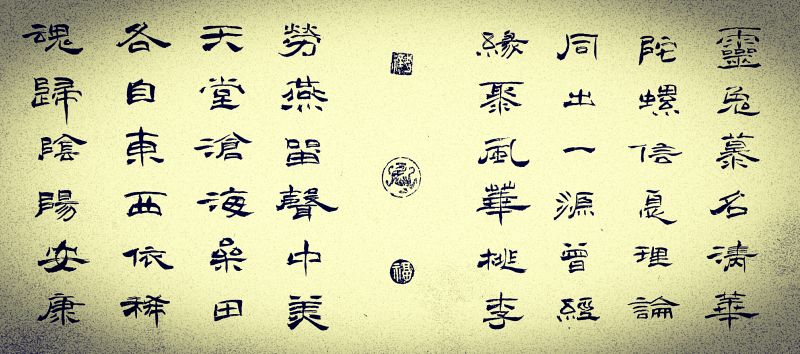 靈兔慕名清華
陀螺信息理論
同出一源曾經
緣聚風華桃李
福
勞燕留聲中美
天堂滄海桑田
各自東西依稀
魂歸陰陽安康